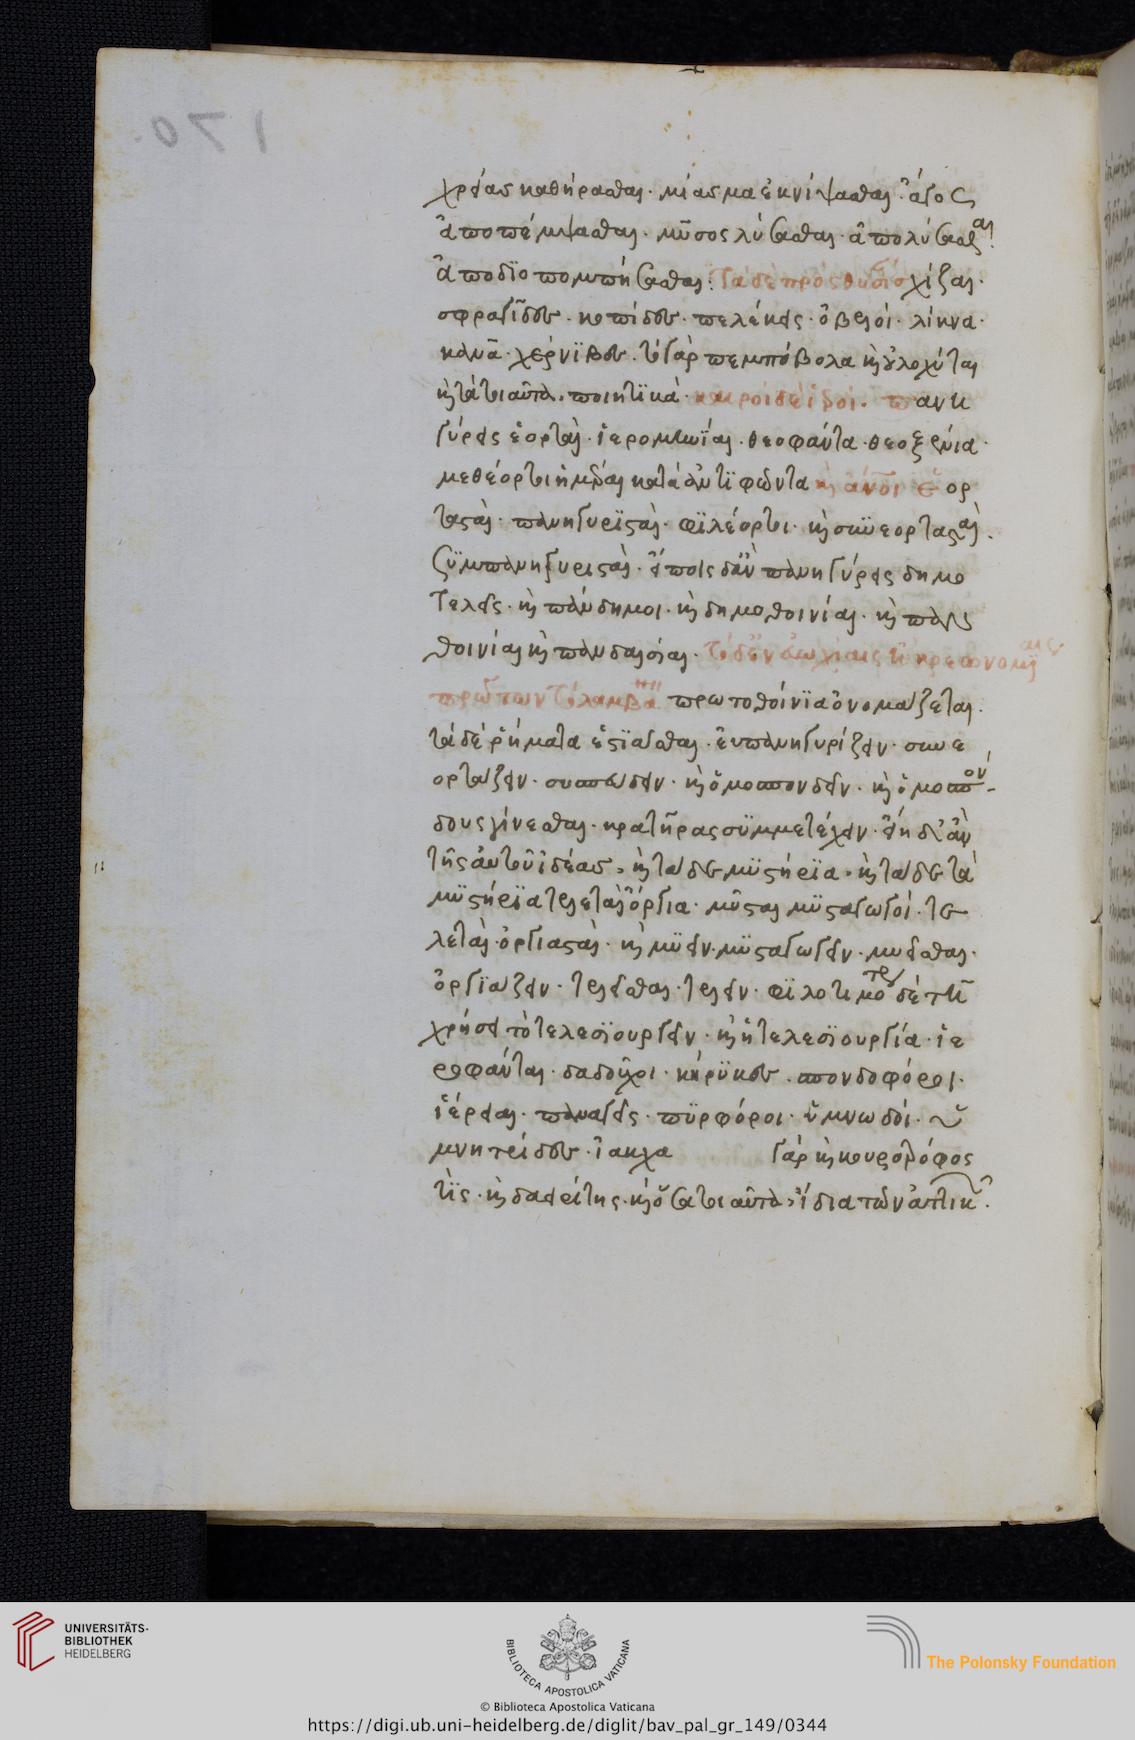 χρείας καθήρασθαι· μίασμα ἐκνίψασθαι· ἄγος
ἀποπέμψασθαι· μῦσος λύσασθαι· ἀπολύσασθαι·
ἀποδιοπομπήσασθαι· τὰ δὲ πρὸς θυσίας σχίζαι·
σφαγίδες· κοπίδες· πελέκεις· ὀβελοί· λίκνα·
κανᾶ· χέρνιβες· τὰ γὰρ πεμπώβολα καὶ οὐλοχύται
καὶ τὰ τοιαῦτα ποιητικά· καιροὶ δὲ ἱεροί· πανη
γύρεις ἑορταί· ἱερομηνίαι· θεοφάνια· θεοξένια·
μεθέορτοι ἡμέραι κατὰ ἀντιφῶντα καὶ ἄνθρωποι ἑορ
τασταί· πανηγυρισταί· φιλέορτοι· καὶ συνεορτασταί·
συμπανηγυρισταί· εἴποις δ' ἂν πανηγύρεις δημο
τελεῖς· καὶ πάνδημοι· καὶ δημοθοινίαι· καὶ παν
θοινίαι καὶ πανδαισίαι· τὸ δ' ἐν εὐωχίαις ἢ κρεωνομίαις
πρῶτον τὸ λαμβα πρωτοθοίνια ὀνομάζεται·
τὰ δὲ ῥήματα ἑστιᾶσθαι· ἐνπανηγυρίζειν· συνε
ορτάζειν· συσπένδειν· καὶ ὁμοσπονδεῖν· καὶ ὁμοσπόν
δους γίνεσθαι· κρατῆρας συμμετέχειν· εἴη δ' ἂν
τῆς αὐτοῦ ἰδέας· καὶ τάδε μυστήρια· καὶ τάδε τὰ
μυστήρια τελεταὶ ὄργια· μύσται μυσταγωγοί· τε
λεταί· ὀργιασταί· καὶ μυεῖν· μυσταγωγεῖν· μυεῖσθαι·
ὀργιάζειν· τελεῖσθαι· τελεῖν· φιλοτιμότερ δὲ τῆ
χρήσει τὸ τελεσιουργεῖν· καὶ ἡ τελεσιουργία· ἱε
ροφάνται· δαδοῦχοι· κήρυκες· σπονδοφόροι·
ἱέρειαι· παναγεῖς· πυρφόροι· ὑμνωδοί· ὑ
μνητρίδες· ἰακχα γὰρ καὶ κουροτρόφος
τις· καὶ δαειρίτης· καὶ ὅσα τοιαῦτα· ἴδια τῶν ἀττικῶν·
UNIVERSITÄTS-
BIBLIOTHEK
HEIDELBERG
BIBLIOTECA APOSTOLICA VATICANA
The Polonsky Foundation
© Biblioteca Apostolica Vaticana
https://digi.ub.uni-heidelberg.de/diglit/bav_pal_gr_149/0344